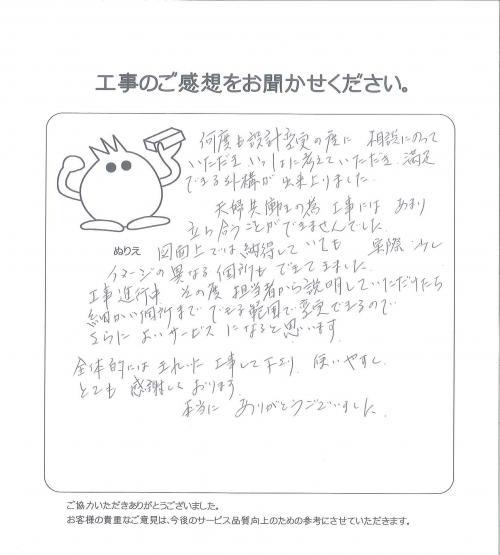 工事のご感想をお聞かせください。
何度も設計変更の度に 相談にのって
いただき いっしょに考えていただき、満足
できる外構が出来上りました。
夫婦共働きの為 工事には あまり
立ち合うことができませんでした。
ぬりえ
図面上では納得して いても 実際 少し
イメージの異なる個所も でてきました。
工事進行中 その度 担当者から説明していただけたら
細かい個所まで できる範囲で変更できるので
さらに よいサービス になると思います。
全体的には きれいに工事して下さり、使いやすく
とても 感謝して おります。
本当に ありがとうございました。
ご協力いただきありがとうございました。
お客様の貴重なご意見は、今後のサービス品質向上のための参考にさせていただきます。